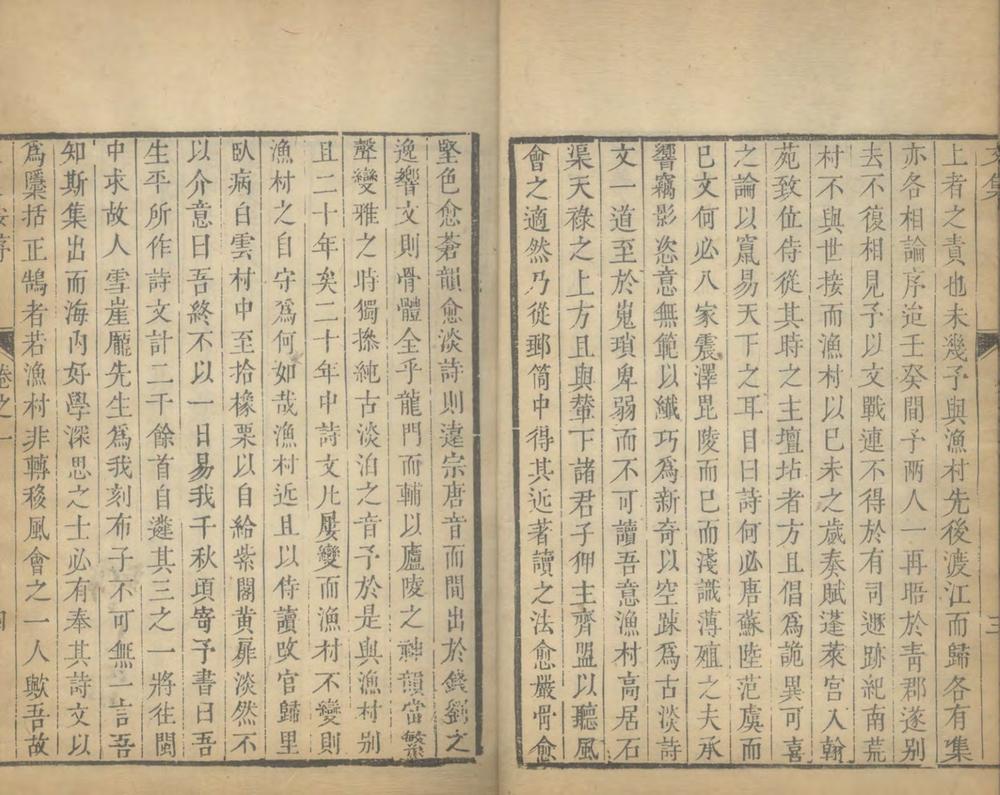 文集
三
上者之責也未幾予與漁村先後渡江而歸各有集
亦各相論序迨壬癸間予兩人一再晤於青郡遂別
去不復相見予以文戰連不得於有司遯跡紀南荒
村不與世接而漁村以巳未之歲奏賦蓬萊宮入翰
苑致位侍從其時之主壇坫者方且倡為詭異可喜
之論以竄易天下之耳目曰詩何必唐蘇陸范虞而
巳文何必八家震澤毘陵而巳而淺識薄殖之夫承
響竊影恣意無範以纖巧為新奇以空踈為古淡詩
文一道至於嵬瑣卑弱而不可讀吾意漁村高居石
渠天祿之上方且與輦下諸君子狎主齊盟以聽風
會之適然乃從郵筒中得其近著讀之法愈嚴骨愈
堅色愈蒼韻愈淡詩則違宗唐音而間出於錢劉之
逸響文則骨體全乎龍門而輔以廬陵之神韻當繁
聲變雅之時獨摻純古淡泊之音予於是與漁村別
且二十年矣二十年中詩文凡屢變而漁村不變則
漁村之自守為何如哉漁村近且以侍讀改官歸里
臥病白雲村中至拾橡栗以自給紫閣黃扉淡然不
以介意曰吾終不以一日易我千秋頃寄予書曰吾
生平所作詩文計二千餘首自遴其三之一將往閩
中求故人雪崖龎先生為我刻布子不可無一言吾
知斯集出而海內好學深思之士必有奉其詩文以
為檃括正鵠者若漁村非轉移風會之一人歟吾故
序
卷之一
四